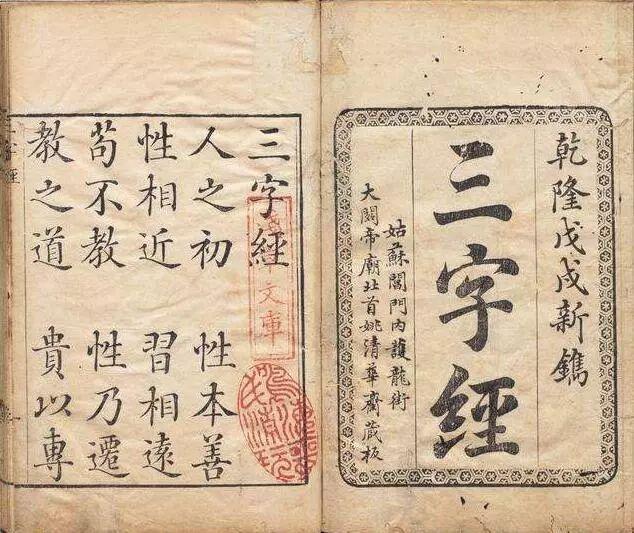 乾隆戊戌新鐫
三字經
姑蘇閶門內護龍街
大關帝廟北首姚清華齋藏板
三字經
人之初 性本善
性相近 習相遠
苟不教 性乃遷
教之道 貴以專
文庫